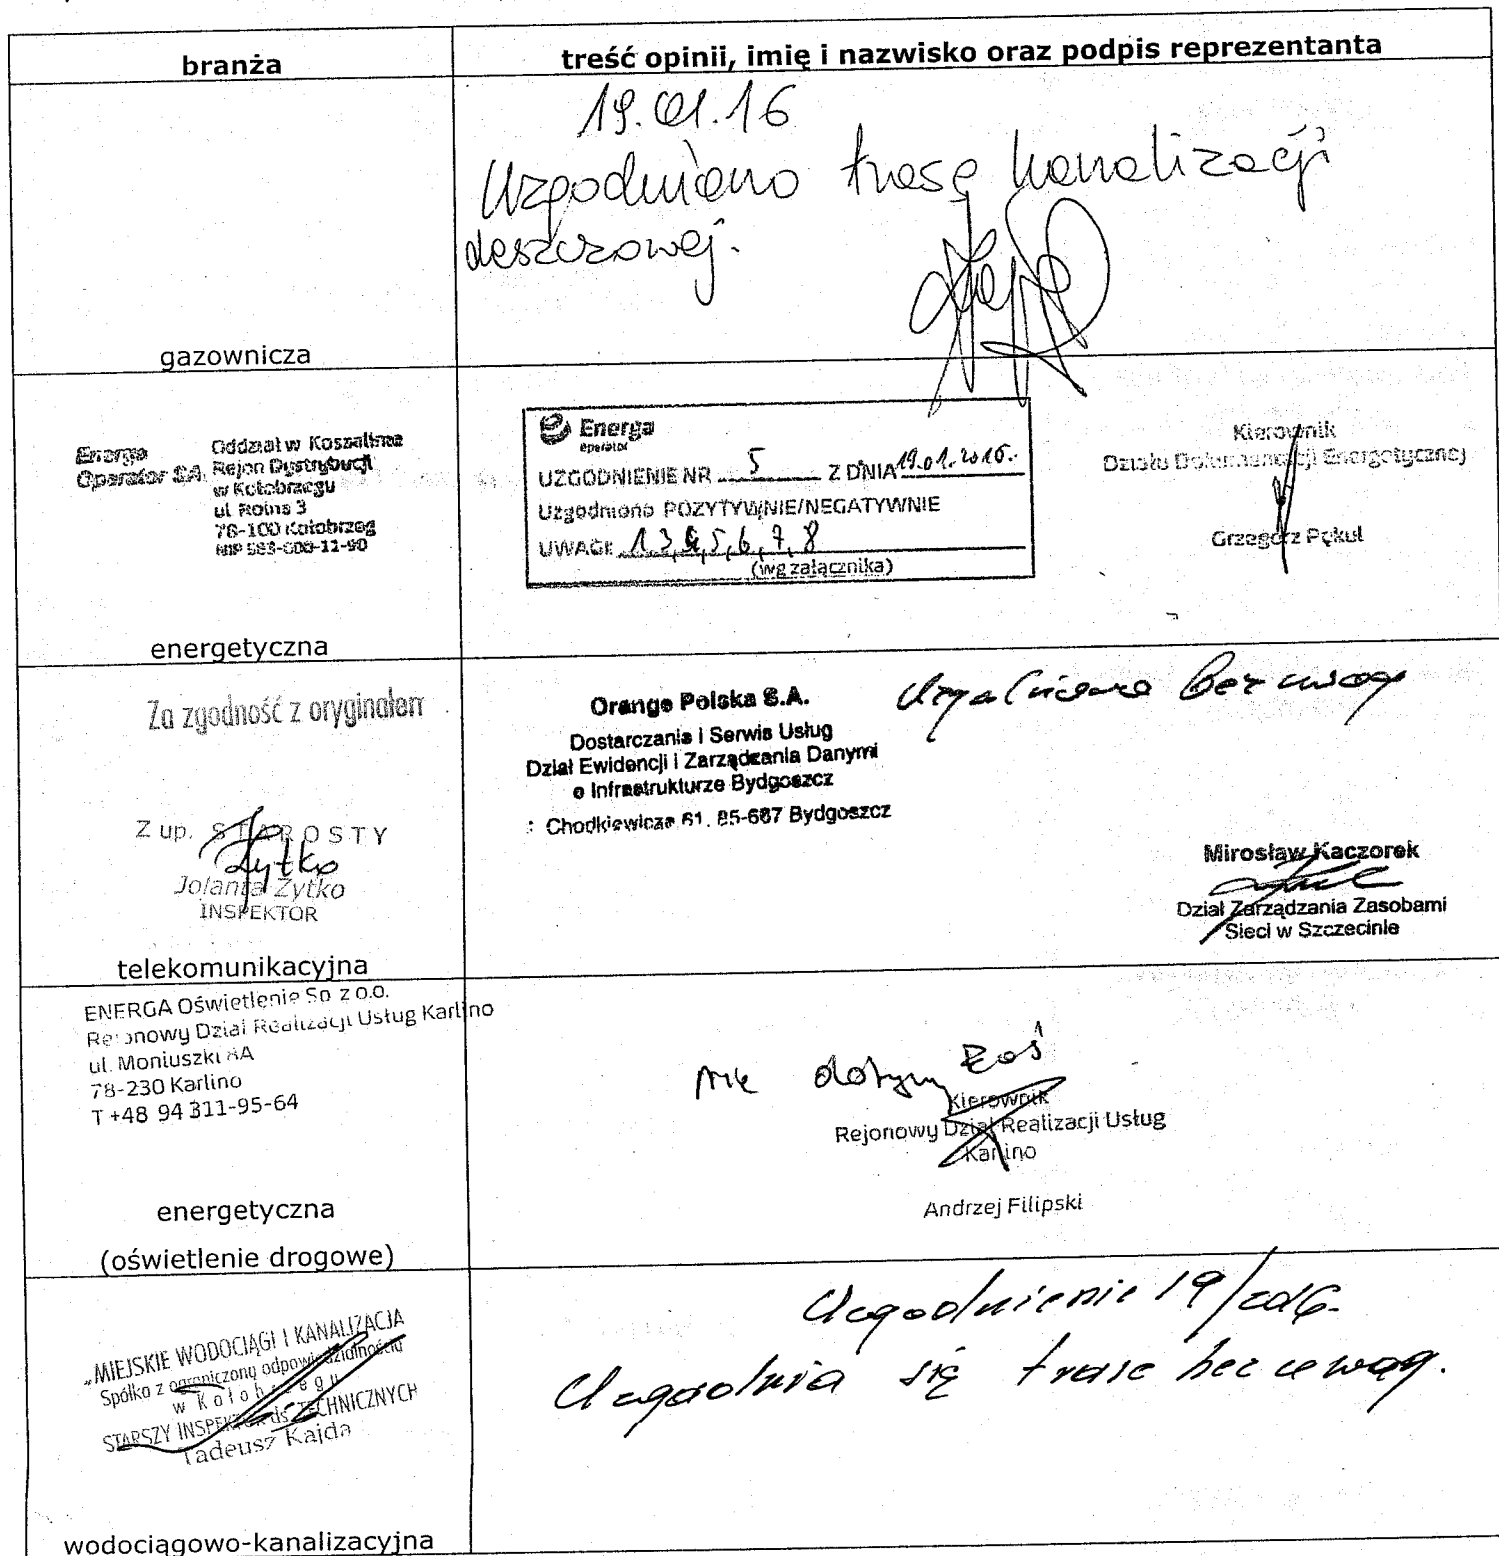 branża
treść opinii, imię i nazwisko oraz podpis reprezentanta
19.01.16
Uzgodniono trasę kanalizacji
deszczowej.
gazownicza
Energa
Operator SA
Oddział w Koszalinie
Rejon Dystrybucji
w Kołobrzegu
ul. Rolna 3
78-100 Kołobrzeg
NIP 583-000-11-90
Energa
operator
UZGODNIENIE NR 5 Z DNIA 19.01.2016.
Uzgodniono POZYTYWNIE/NEGATYWNIE
UWAGI: 1.3,4,5,6,7,8
(wg załącznika)
Kierownik
Działu Dokumentacji Energetycznej
Grzegorz Pękul
energetyczna
Za zgodność z oryginałem
Z up. STAROSTY
Żytko
Jolanta Żytko
INSPEKTOR
Orange Polska S.A.
Dostarczanie i Serwis Usług
Dział Ewidencji i Zarządzania Danymi
o Infrastrukturze Bydgoszcz
Chodkiewicza 61, 85-667 Bydgoszcz
bez uwag
Mirosław Kaczorek
Dział Zarządzania Zasobami
Sieci w Szczecinie
telekomunikacyjna
ENERGA Oświetlenie Sp. z o.o.
Rejonowy Dział Realizacji Usług Karlino
ul. Moniuszki 8A
78-230 Karlino
T +48 94 311-95-64
nie dotyczy EOŚ
Kierownik
Rejonowy Dział Realizacji Usług
Karlino
Andrzej Filipski
energetyczna
(oświetlenie drogowe)
„MIEJSKIE WODOCIĄGI I KANALIZACJA
Spółka z ograniczoną odpowiedzialnością
w Kołobrzegu
STARSZY INSPEKTOR ds. TECHNICZNYCH
Tadeusz Kajda
Uzgodnienie 19/2016.
Uzgadnia się trasę bez uwag.
wodociągowo-kanalizacyjna